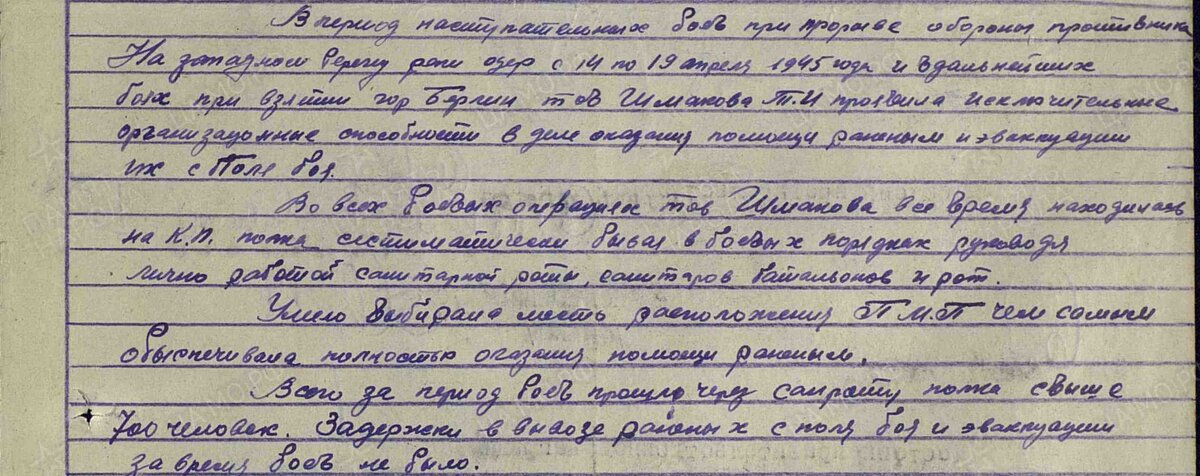 В период наступательных боев при прорыве обороны противника
На западном берегу реки одер с 14 по 19 апреля 1945 года и в дальнейших
боях при взятии гор Берлин тов Шмакова Т.И проявила исключительные
организационные способности в деле оказания помощи раненым и эвакуации
их с Поля боя.
Во всех боевых операциях тов Шмакова все время находилась
на К.П. полка систиматически бывая в боевых порядках руководя
лично работой санитарной роты, санитаров батальонов и рот.
Умело выбирала месть расположения П.М.П чем самым
обеспечивала полностью оказания помощи раненым.
Всего за период боев прошло через санроту полка свыше
700 человек. Задержки в вывозе раненых с поля боя и эвакуации
за время боев не было.